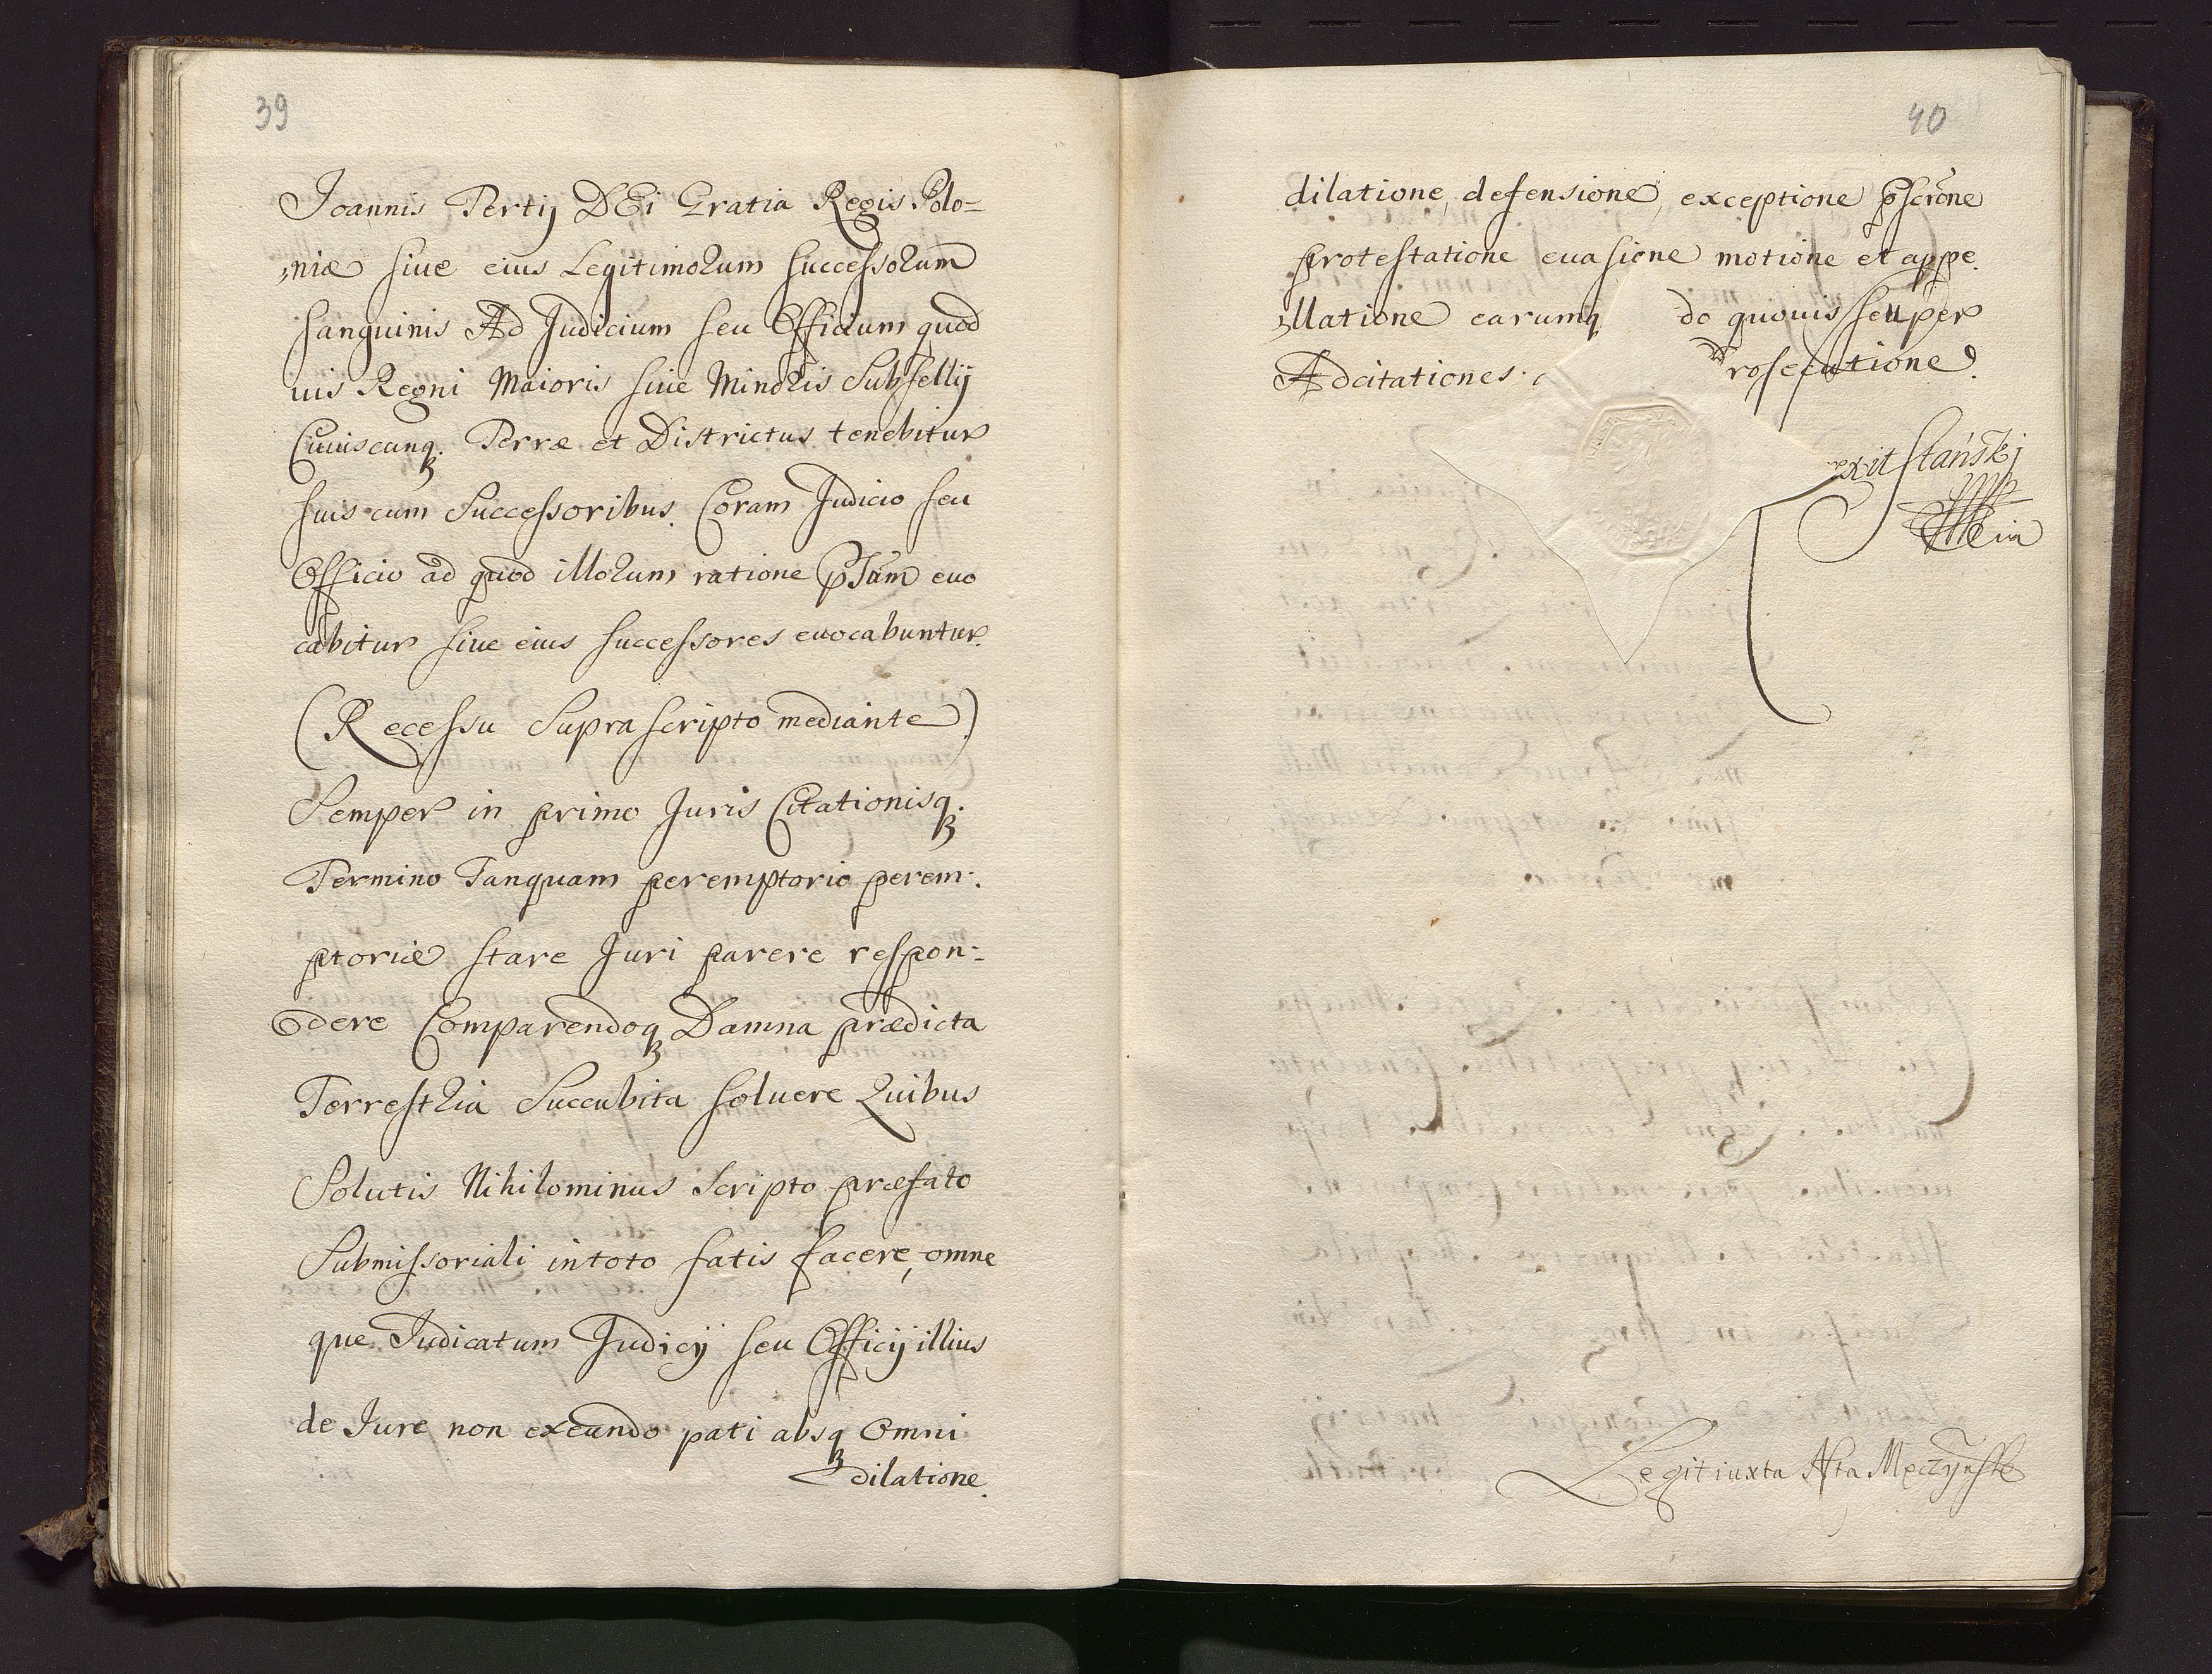 39
Joannis Tertij DEi Gratia Regis Polo=
niæ siue eius Legitimorum successorum
sanguinis Ad Judicium seu Officium quod
uis Regni Maioris siue Minoris Subsellij
Cuiuscunq. Terræ et Districtus tenebitur
suis cum Successoribus. Coram Judicio seu
Officio ad quod illorum ratione euo
cabitur siue eius successores euocabuntur.
(Recessu Suprascripto mediante)
Semper in primo Juris Citationisq.
Termino Tanquam peremptorio perem:
ptorie stare Juri parere respon:
dere Comparendoq Damna prædicta
Terrestria Succubita soluere Quibus
Solutis Nihilominus Scripto præfato
Submissoriali in toto satis facere, omne
que Judicatum Judicij seu Officij illius
de Jure non exeundo pati absq omni
dilatione.
40
dilatione, defensione, exceptione
protestatione euasione motione et appe
llatione earumq do quouis seu per
Adcitationes rosecutione.
xit Stański
mp
Legit iuxta Acta Męczyński